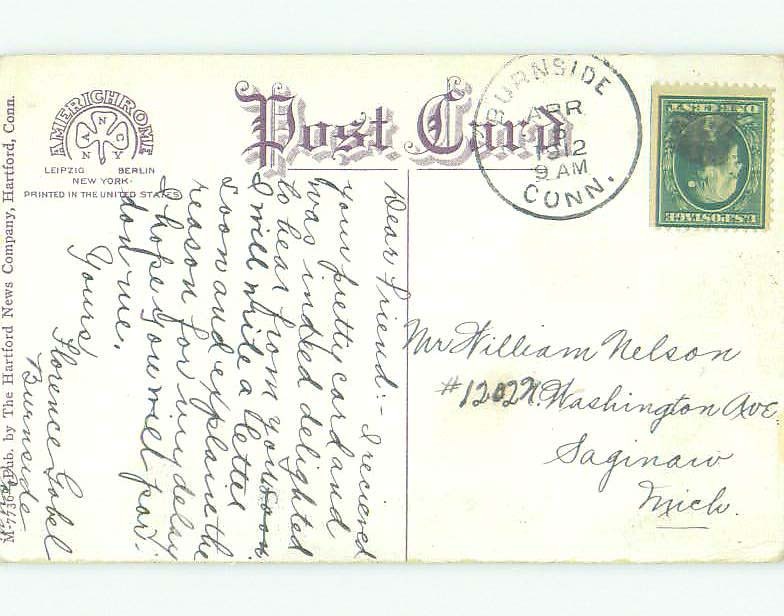 Post Card
AMERICHROME
A N C Y
LEIPZIG BERLIN
NEW YORK
PRINTED IN THE UNITED STATES
M-7736 Pub. by The Hartford News Company, Hartford, Conn.
BURNSIDE
APR
1912
9 AM
CONN.
U.S. POSTAGE
Dear Friend:- I recieved
your pretty card and
was indeed delighted
to hear from you soon.
I will write a letter
soon and explain the
reason for my delay
I hope you will par-
don me.
Yours
Florence Gobel
Burnside
Mr William Nelson
#1202 N. Washington Ave
Saginaw
Mich.